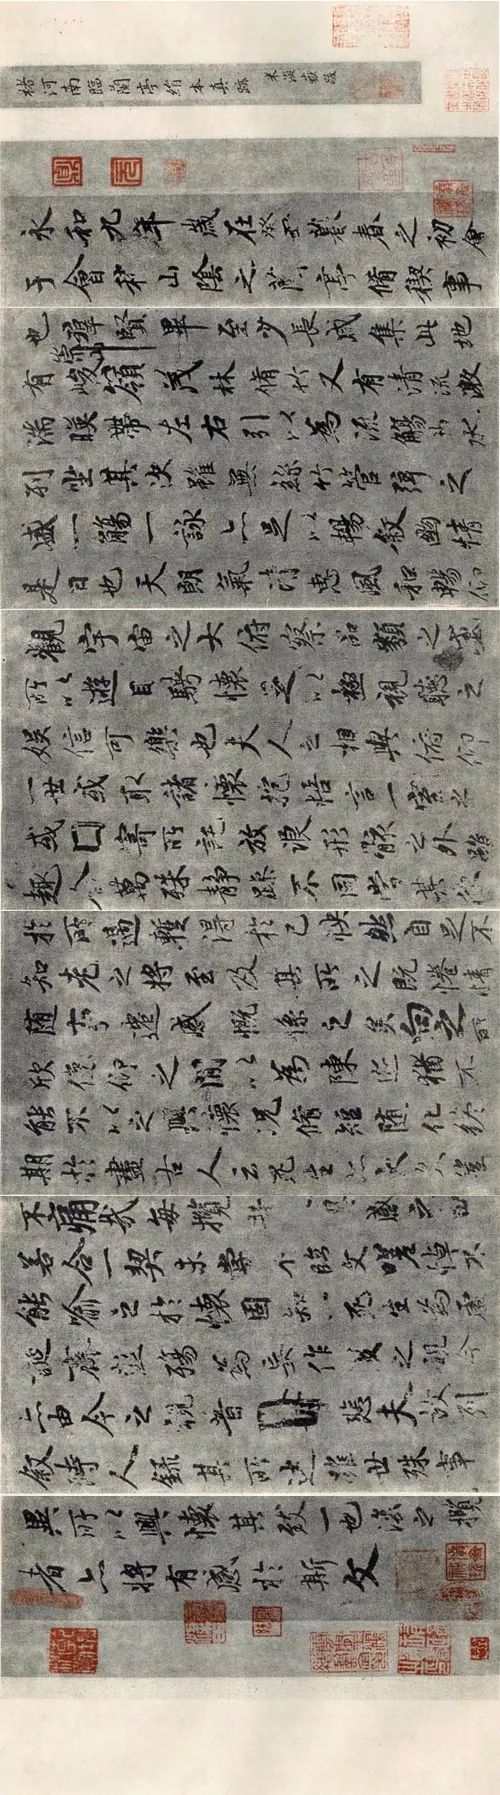 褚河南臨蘭亭絹本真跡 米海嶽跋
永和九年歲在癸丑暮春之初會
于會稽山陰之蘭亭脩稧事
也群賢畢至少長咸集此地
有崇山峻嶺茂林脩竹又有清流激
湍暎帶左右引以為流觴曲水
列坐其次雖無絲竹管弦之
盛一觴一詠亦足以暢敘幽情
是日也天朗氣清惠風和暢仰
觀宇宙之大俯察品類之盛
所以遊目騁懷足以極視聽之
娛信可樂也夫人之相與俯仰
一世或取諸懷抱悟言一室之內
或因寄所託放浪形骸之外雖
趣舍萬殊靜躁不同當其欣
於所遇暫得於己怏然自足不
知老之將至及其所之既惓情
隨事遷感慨係之矣向之所
欣俛仰之間以為陳迹猶不
能不以之興懷況脩短隨化終
期於盡古人云死生亦大矣豈
不痛哉每攬昔人興感之由
若合一契未嘗不臨文嗟悼不
能喻之於懷固知一死生為虛
誕齊彭殤為妄作後之視今
亦由今之視昔悲夫故列
敘時人錄其所述雖世殊事
異所以興懷其致一也後之攬
者亦將有感於斯文